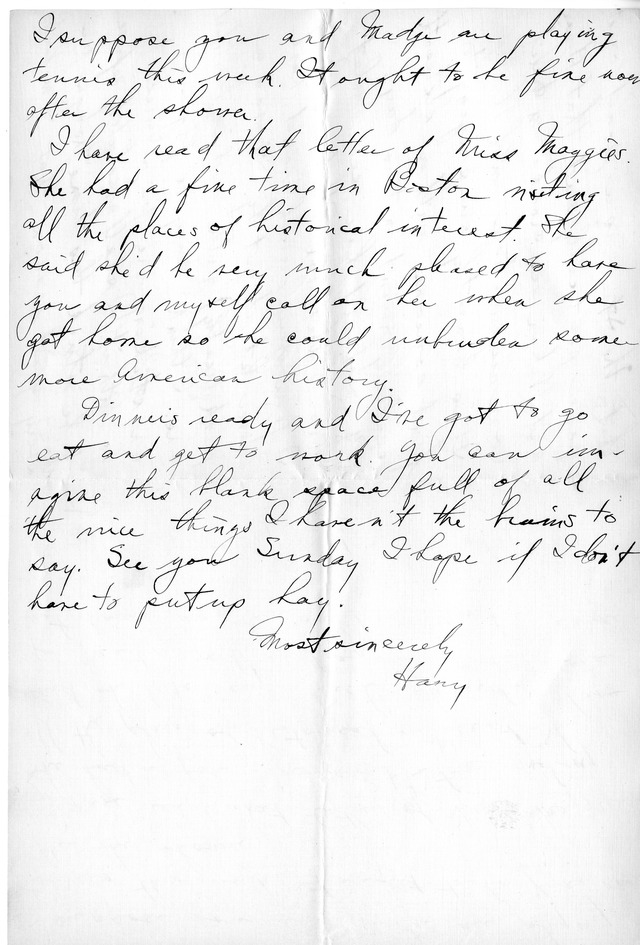 I suppose you and Madge are playing
tennis this week. It ought to be fine now
after the shower.
I have read that letter of Miss Maggies.
She had a fine time in Boston visiting
all the places of historical interest. She
said she'd be very much pleased to have
you and myself call on her when she
got home so she could unburden some
more American history.
Dinner is ready and I've got to go
eat and get to work. You can im-
agine this blank space full of all
the nice things I haven't the brains to
say. See you Sunday I hope if I don't
have to put up hay.
Most sincerely
Harry